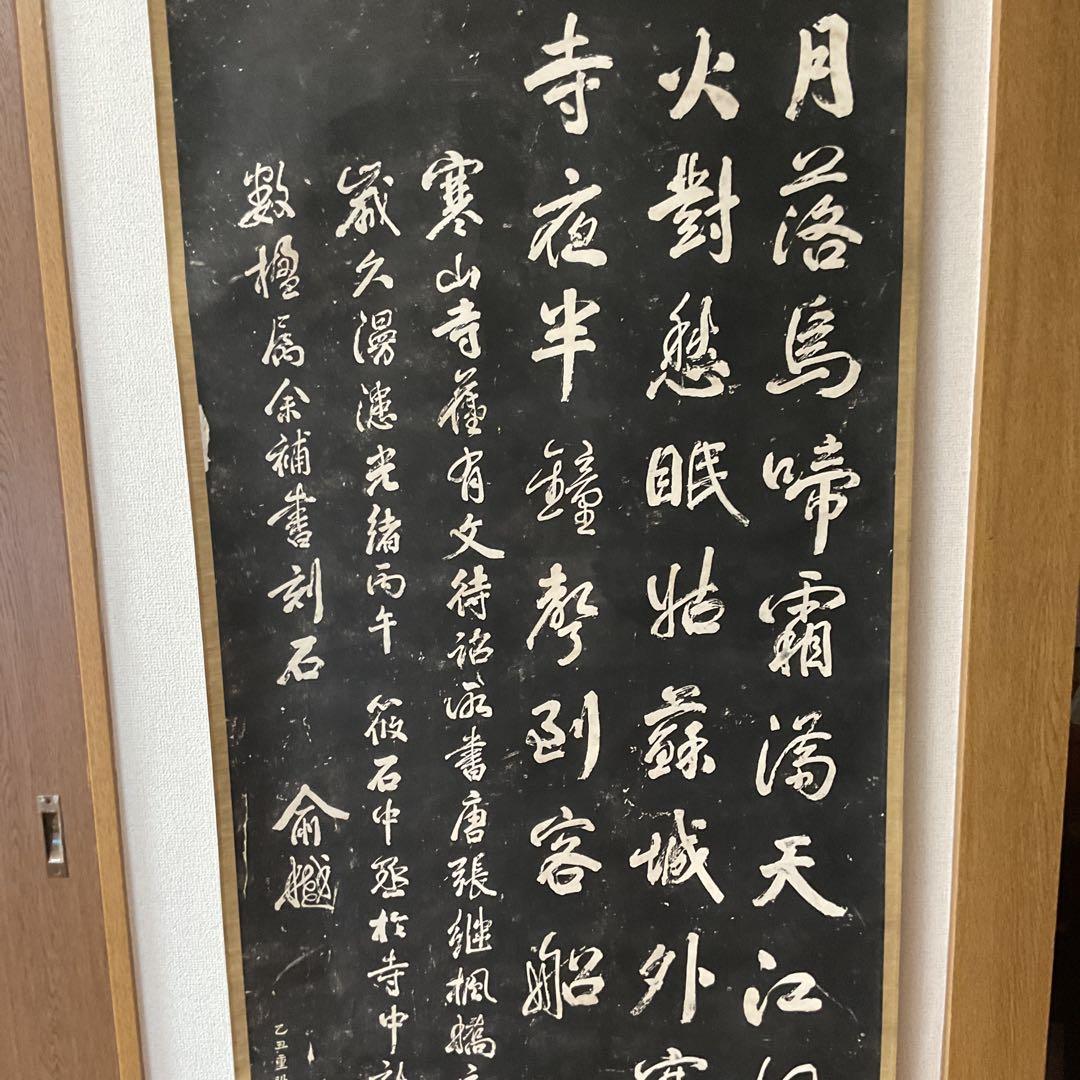 月落烏啼霜滿天江
火對愁眠姑蘇城外寒
寺夜半鐘聲到客船
寒山寺舊有文待詔所書唐張繼楓橋
歲久漫漶光緒丙午 筱石中丞於寺中
數楹屬余補書刻石 俞樾
乙丑重